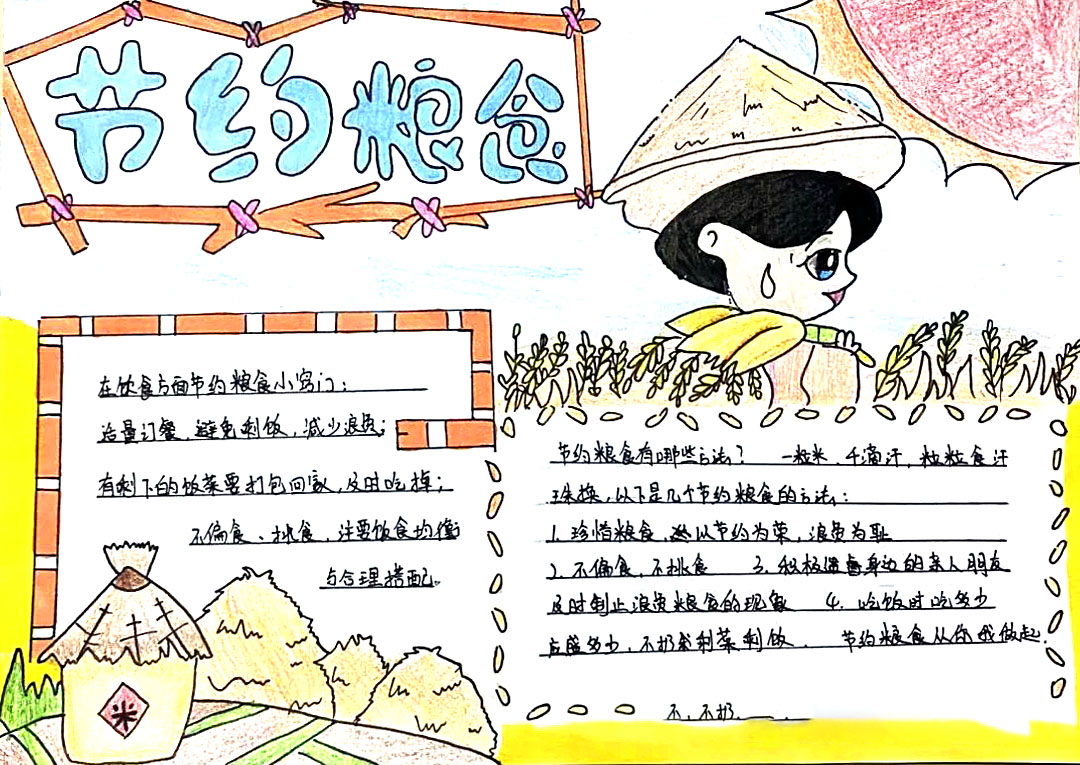 节约粮食
在饮食方面节约粮食小窍门：
适量订餐，避免剩饭，减少浪费；
有剩下的饭菜要打包回家，及时吃掉；
不偏食、挑食，注要饮食均衡
与合理搭配。
米
节约粮食有哪些方法？ 一粒米，千滴汗，粒粒食汗
珠换，以下是几个节约粮食的方法：
1. 珍惜粮食，以节约为荣，浪费为耻
2. 不偏食，不挑食 3. 积极身边的亲人朋友
及时制止浪费粮食的现象 4. 吃饭时吃多少
盛多少，不扔剩菜剩饭． 节约粮食从你我做起．
不，不扔．